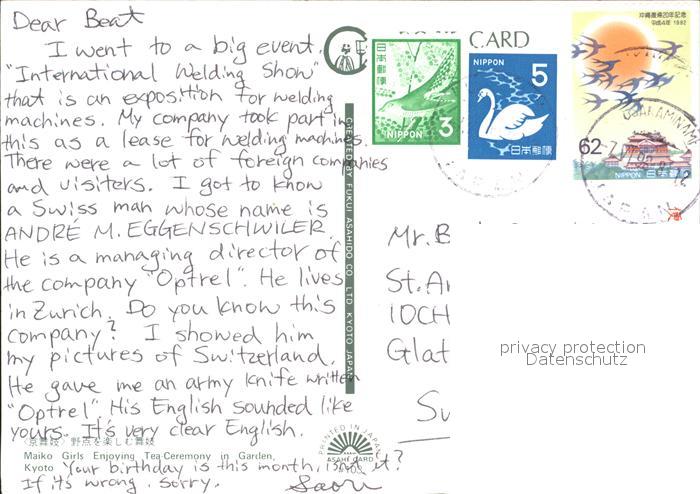 Dear Beat
I went to a big event.
"International Welding Show"
that is an exposition for welding
machines. My company took part in
this as a lease for welding machines.
There were a lot of foreign companies
and visiters. I got to know
a Swiss man whose name is
ANDRÉ M. EGGENSCHWILER.
He is a managing director of
the company "Optrel". He lives
in Zurich. Do you know this
company? I showed him
my pictures of Switzerland.
He gave me an army knife written
"Optrel". His English sounded like
yours. It's very clear English.
〈京舞妓〉野点を楽しむ舞妓
Maiko Girls Enjoying Tea-Ceremony in Garden,
Kyoto
Your birthday is this month, isn't it?
If it's wrong. sorry.
Saori
CREATED BY FUKUI ASAHIDO CO., LTD. KYOTO JAPAN
PRINTED IN JAPAN
ASAHI CARD
CARD
日本郵便
NIPPON
3
NIPPON
5
日本郵便
沖縄復帰20年記念
平成4年 1992
62
NIPPON 日本郵便
JAPAN
Mr. B
St. A
10CH
Glat
Su
privacy protection
Datenschutz